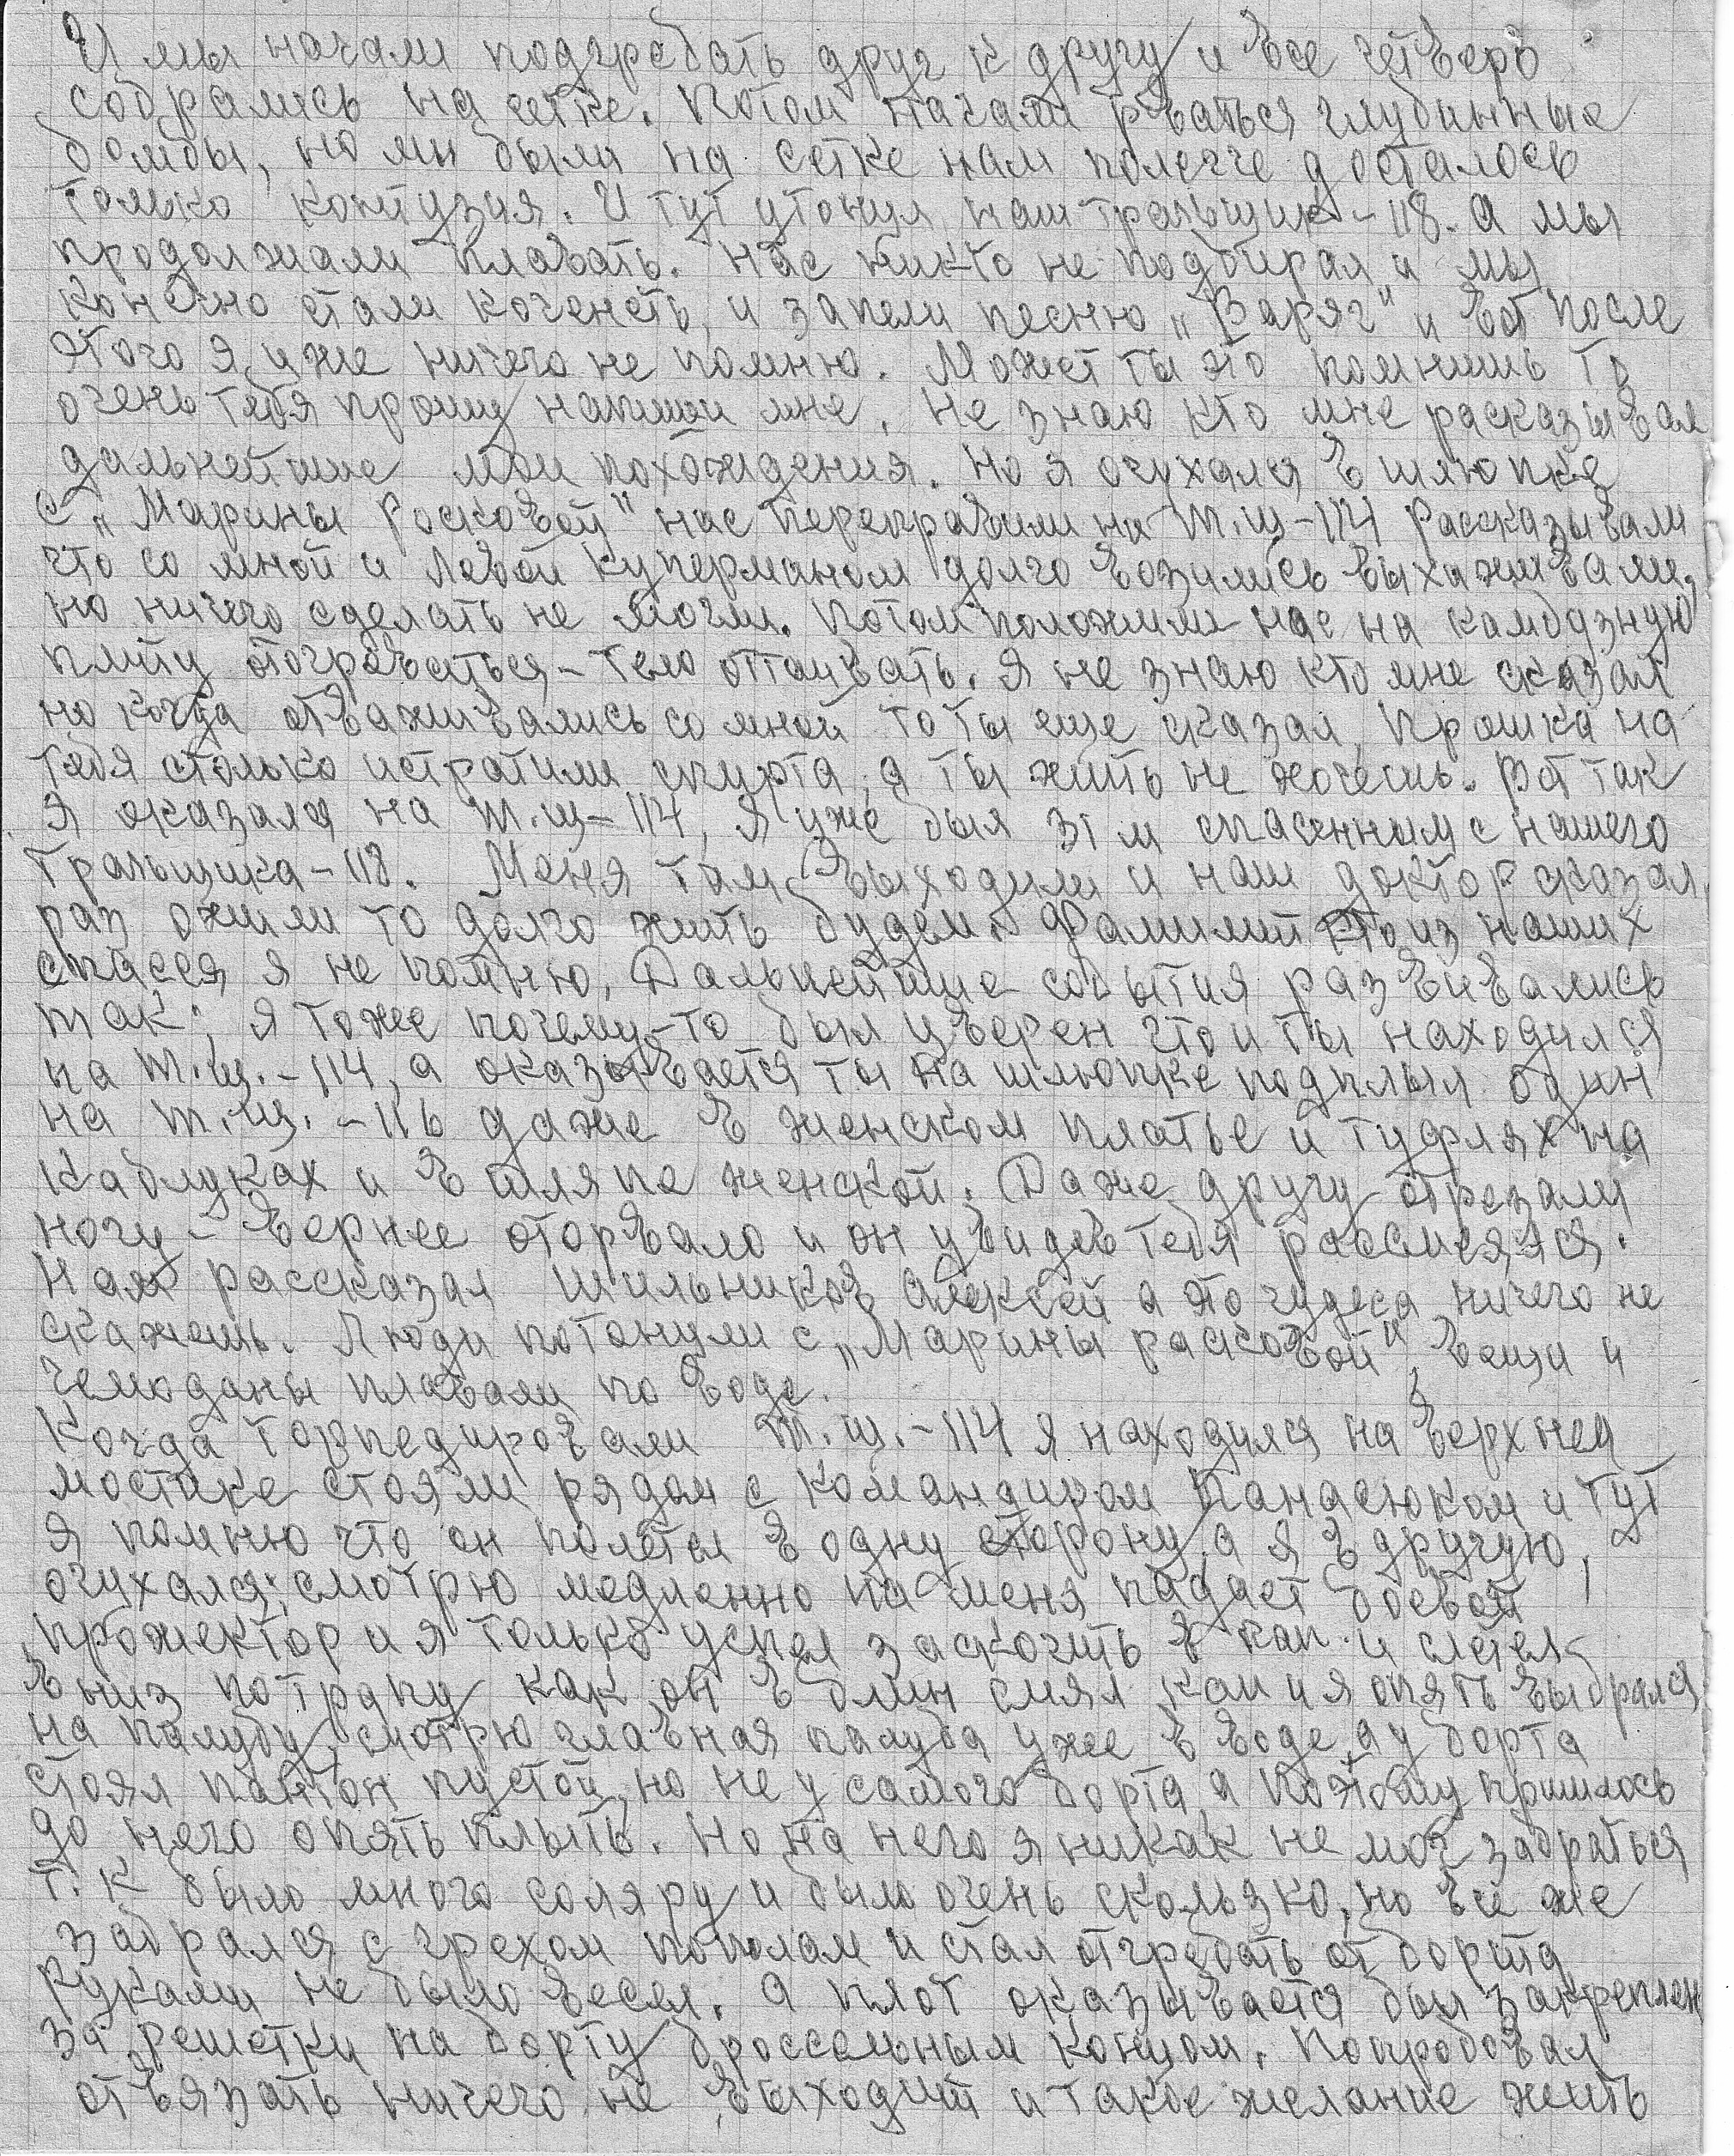 И мы начали подгребать друг к другу и все четверо
собрались на сетке. Потом начали рваться глубинные
бомбы, но мы были на сетке нам полегче досталось
только контузия. И тут утонул наш тральщик-118. а мы
продолжали плавать. Нас никто не подбирал и мы
конечно стали коченеть, и запели песню „Варяг" и вот после
этого я уже ничего не помню. Может ты это помнишь то
очень тебя прошу напиши мне. Не знаю кто мне расказывал
дальнейшие мои похождения. Но я очухался в шлюпке
с „Марины Росковой" нас переправили на Т.щ-114 Рассказывали
что со мной и Левой Куперманом долго возились выхаживали,
но ничего сделать не могли. Потом положили нас на камбузную
плиту отограваться-тело оттаивать. Я не знаю кто мне сказал
но когда отваживались со мной то ты еще сказал, Прошка на
тебя столько истратили спирта, а ты жить не хочешь. Вот так
я оказался на Т.щ-114, я уже был 31 м спасенным с нашего
Тральщика-118. Меня там выходили и наш доктор сказал,
раз ожили то долго жить будем. Фамилий кто из наших
спасся я не помню. Дальнейшие события развивались
так: я тоже почему-то был уверен что и ты находился
на Т.щ.-114, а оказывается ты на шлюпке подплыл один
на Т.щ.-116 даже в женском платье и туфлях на
каблуках и в шляпе женской. Даже другу отрезали
ногу-вернее оторвало и он увидев тебя рассмеялся.
Нам рассказал Шильников Алексей а это чудеса ничего не
скажешь. Люди потонули с „Марины расковой", вещи и
чемоданы плавали по воде.
Когда торпедировали Т.щ.-114 я находился на верхнем
мостике стояли рядом с командиром Панасюком и тут
я помню что он полетел в одну сторону а я в другую,
очухался; смотрю медленно на меня падает боевой
прожектор и я только успел заскочить в кап и слетел
вниз по трапу как он в блин смял кап и я опять выбрался
на палубу, смотрю главная палуба уже в воде а у борта
стоял пантон пустой, но не у самого борта, а поэтому пришлось
до него опять плыть. Но на него я никак не мог забраться
т.к было много соляру и было очень скользко, но всё же
забрался с грехом пополам и стал отгребать от борта
руками не было весел. а плот оказывается был закреплен
за решетку на борту дроссельным концом. Попробовал
отвязать ничего не выходит и такое желание жить